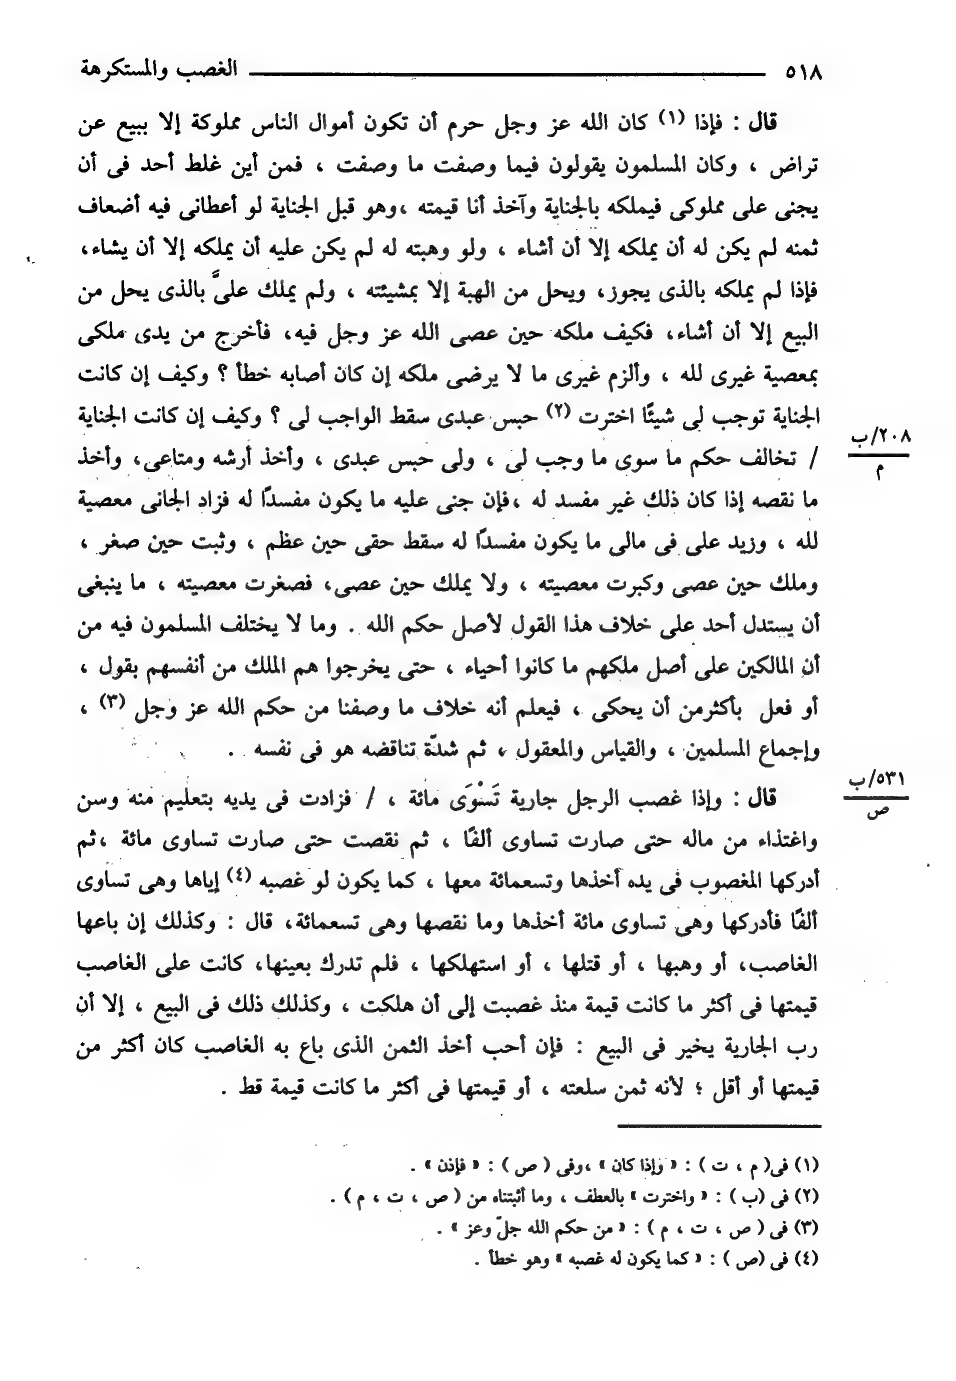 ٥١٨ الغصب والمستكرهة
قال : فإذا (١) كان الله عز وجل حرم أن تكون أموال الناس مملوكة إلا ببيع عن
تراض ، وكان المسلمون يقولون فيما وصفت ما وصفت ، فمن أين غلط أحد فى أن
يجنى على مملوكى فيملكه بالجناية وآخذ أنا قيمته ،وهو قبل الجناية لو أعطانى فيه أضعاف
ثمنه لم يكن له أن يملكه إلا أن أشاء ، ولو وهبته له لم يكن عليه أن يملكه إلا أن يشاء،
فإذا لم يملكه بالذى يجوز، ويحل من الهبة إلا بمشيئته ، ولم يملك علىَّ بالذى يحل من
البيع إلا أن أشاء، فكيف ملكه حين عصى الله عز وجل فيه، فأخرج من يدى ملكى
بمعصية غيرى لله ، وألزم غيرى ما لا يرضى ملكه إن كان أصابه خطأ ؟ وكيف إن كانت
الجناية توجب لى شيئًا اخترت (٢) حبس عبدى سقط الواجب لى ؟ وكيف إن كانت الجناية
٢٠٨/ب
م
/ تخالف حكم ما سوى ما وجب لى ، ولى حبس عبدى ، وأخذ أرشه ومتاعى، وأخذ
ما نقصه إذا كان ذلك غير مفسد له ،فإن جنى عليه ما يكون مفسدًا له فزاد الجانى معصية
لله ، وزيد على فى مالى ما يكون مفسدًا له سقط حقى حين عظم ، وثبت حين صغر ،
وملك حين عصى وكبرت معصيته ، ولا يملك حين عصى، فصغرت معصيته ، ما ينبغى
أن يستدل أحد على خلاف هذا القول لأصل حكم الله . وما لا يختلف المسلمون فيه من
أن المالكين على أصل ملكهم ما كانوا أحياء ، حتى يخرجوا هم الملك من أنفسهم بقول ،
أو فعل بأكثر من أن يحكى ، فيعلم أنه خلاف ما وصفنا من حكم الله عز وجل (٣) ،
وإجماع المسلمين ، والقياس والمعقول ، ثم شدّة تناقضه هو فى نفسه .
٥٣١/ب
ص
قال : وإذا غصب الرجل جارية تَسْوَى مائة ، / فزادت فى يديه بتعليم منه وسن
واغتذاء من ماله حتى صارت تساوى ألفًا ، ثم نقصت حتى صارت تساوى مائة ،ثم
أدركها المغصوب فى يده أخذها وتسعمائة معها ، كما يكون لو غصبه (٤) إياها وهى تساوى
ألفًا فأدركها وهى تساوى مائة أخذها وما نقصها وهى تسعمائة، قال : وكذلك إن باعها
الغاصب، أو وهبها ، أو قتلها ، أو استهلكها ، فلم تدرك بعينها، كانت على الغاصب
قيمتها فى أكثر ما كانت قيمة منذ غصبت إلى أن هلكت ، وكذلك ذلك فى البيع ، إلا أن
رب الجارية يخير فى البيع : فإن أحب أخذ الثمن الذى باع به الغاصب كان أكثر من
قيمتها أو أقل ؛ لأنه ثمن سلعته ، أو قيمتها فى أكثر ما كانت قيمة قط .
(١) فى( م ، ت ) : « وإذا كان » ،وفى ( ص ) : « فإذن » .
(٢) فى (ب ) : « واخترت » بالعطف ، وما أثبتناه من ( ص ، ت ، م ) .
(٣) فى ( ص ، ت ، م ) : « من حكم الله جلّ وعز » .
(٤) فى (ص ) : « كما يكون له غصبه » وهو خطأ .